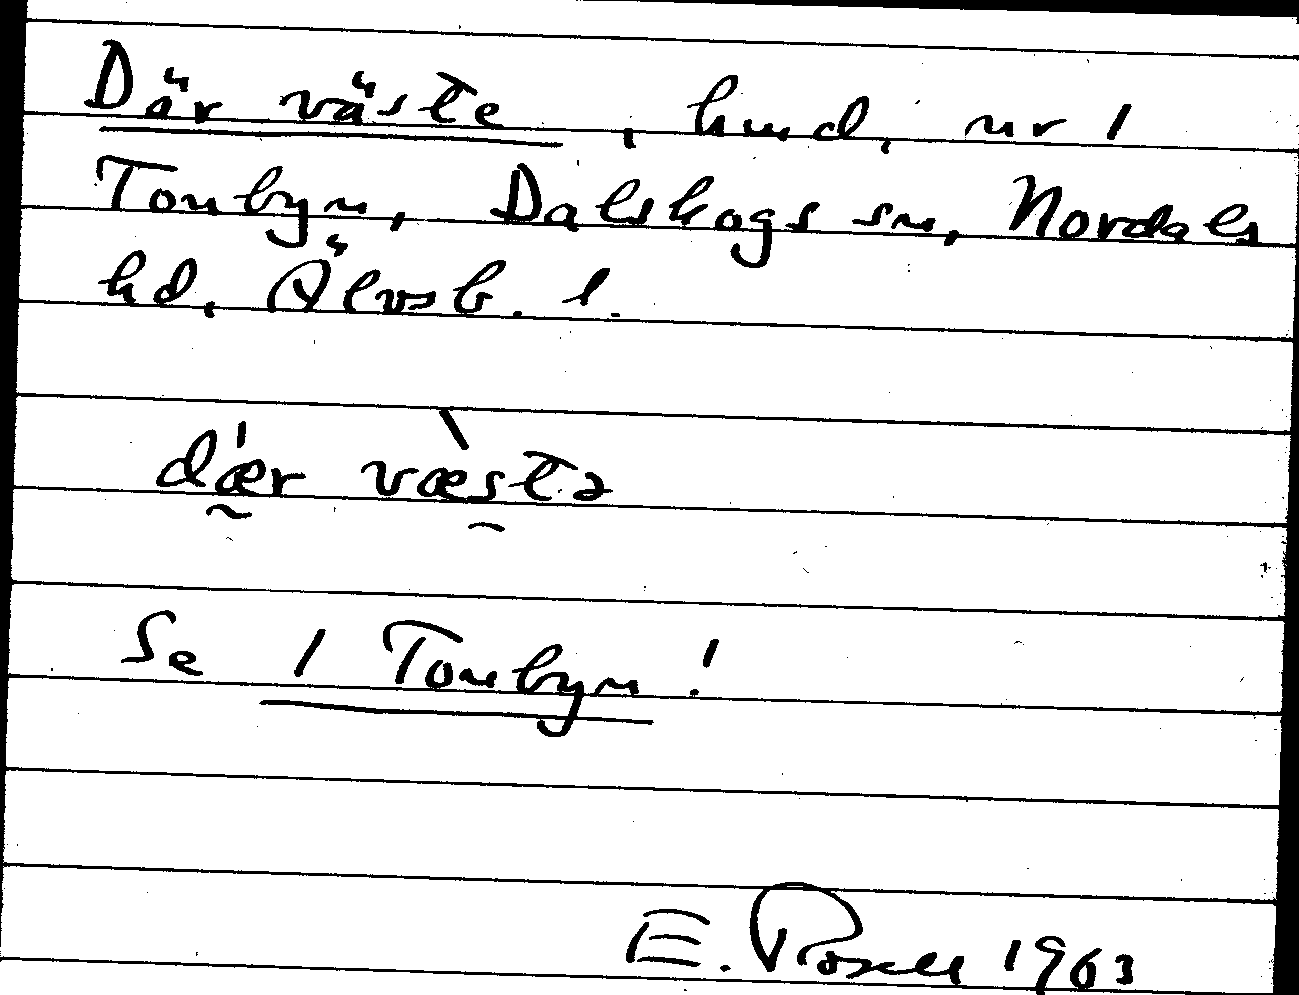 Där väste, hmd, nr 1
Tonbyn, Dalskogs sn, Nordals
hd, Älvsb. l.
dær væstə
Se 1 Tonbyn!
E. Rosell 1963